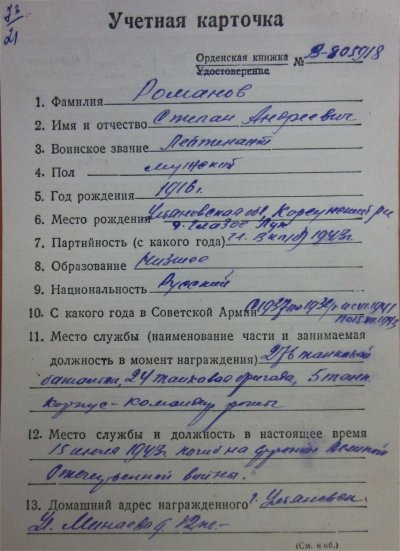 73
21
Учетная карточка
Орденская книжка
Удостоверение № В-205918
1. Фамилия Романов
2. Имя и отчество Степан Андреевич
3. Воинское звание Лейтенант
4. Пол мужской
5. Год рождения 1916 г.
6. Место рождения Ульяновская обл. Корсунский р-н
7. Партийность (с какого года) 1943г.
8. Образование Низшее
9. Национальность Русский
10. С какого года в Советской Армии с 1937 по 1941
по 15.VII.1943
11. Место службы (наименование части и занимаемая
должность в момент награждения) 276 танковый
батальон, 24 танковая бригада, 5 танк.
корпус - командир роты
12. Место службы и должность в настоящее время
15 июля 1943 погиб на фронте Великой
Отечественной войны.
13. Домашний адрес награжденного г. Ульяновск.
ул. Минаева д. 12
(См. н об.)